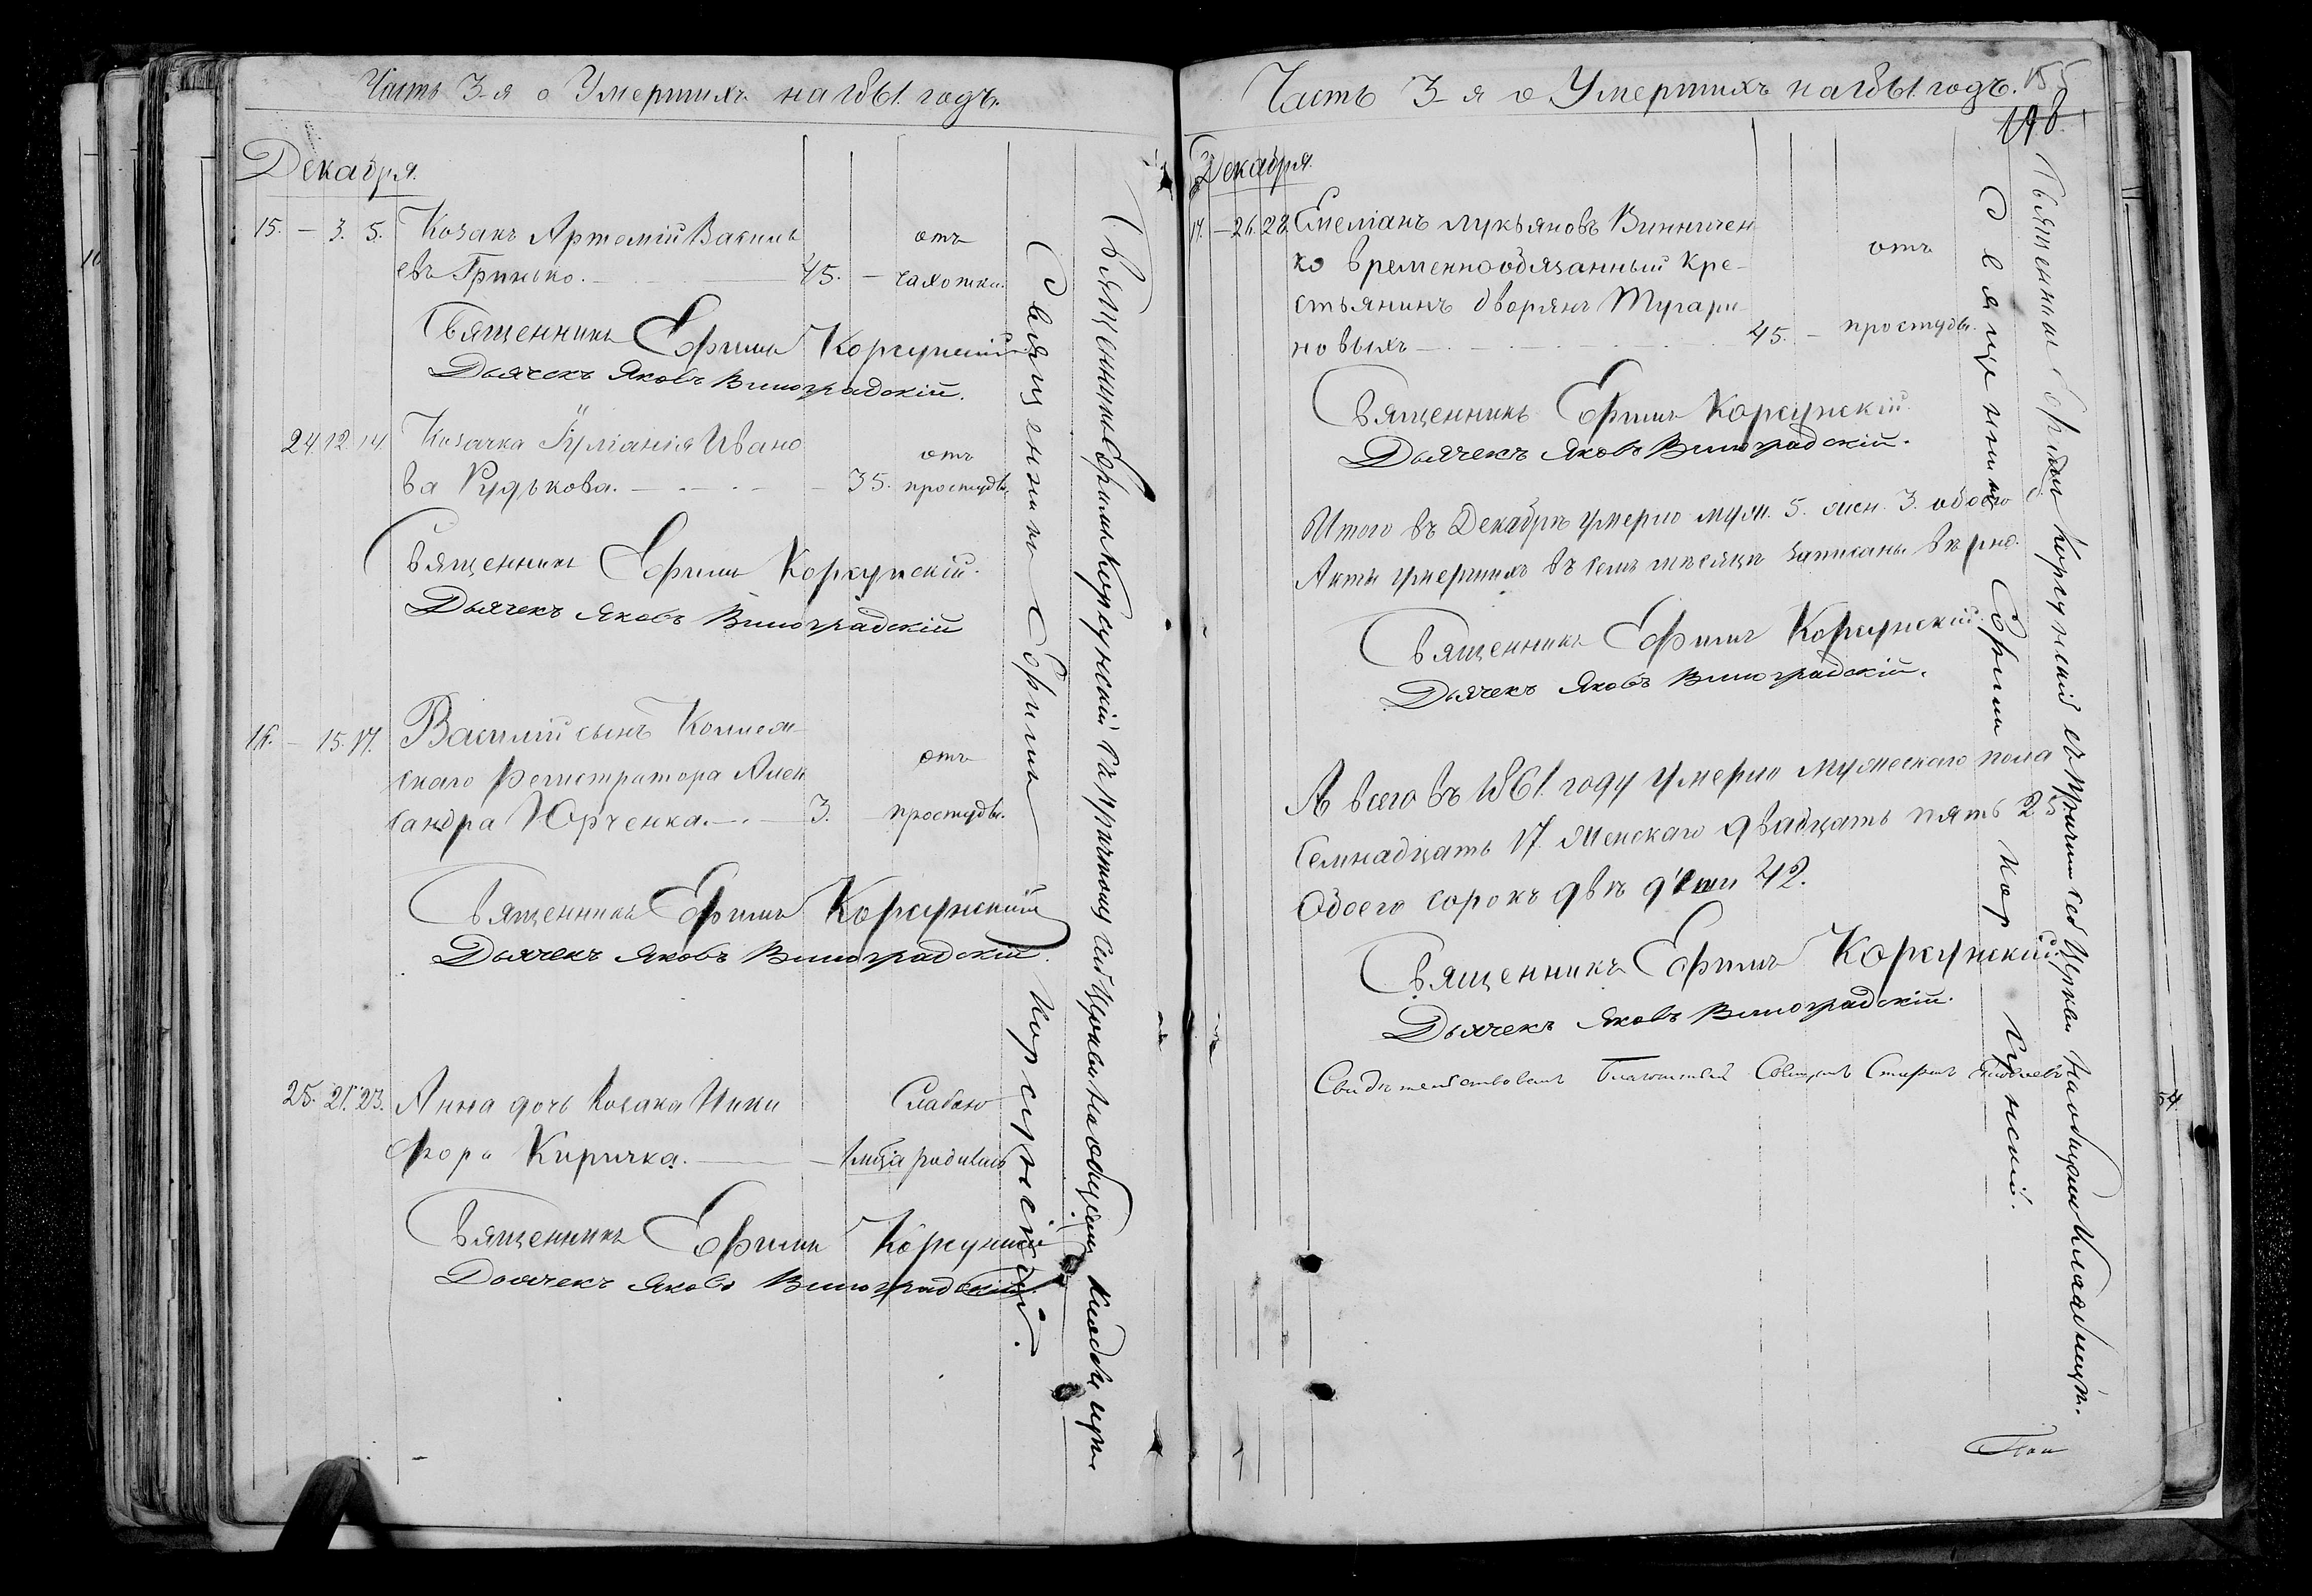 Часть 3-я о Умершихъ на 1861 годъ.
Декабря.
15. — 3. 5. Козакъ Артемій Василь
евъ Гринько. 45. — отъ чахотки.
Священникъ Ефимъ Корсунскій
Дьячекъ Яковъ Виноградскій.
24 12 14 Козачка Іуліанія Ивано
ва Рудькова. — 35. отъ простуды.
Священникъ Ефимъ Корсунскій.
Дьячекъ Яковъ Виноградскій
16. — 15. 17. Василій сынъ Коллеж
скаго Регистратора Алек
сандра Юрченка. — 3. отъ простуды.
Священникъ Ефимъ Корсунскій
Дьячекъ Яковъ Виноградскій.
25. 21. 23. Анна дочь Козака Ники
фора Киричка. — Слабою
родилась
Священникъ Ефимъ Корсунскій
Дьячекъ Яковъ Виноградскій.
Священникъ Ефимъ Корсунскій.
Священникъ Ефимъ Корсунскій съ причтомъ сей Церкви на общемъ кладбищѣ
Часть 3-я о Умершихъ на 1861 годъ. 155
198
Декабря.
17. — 26. 28. Емеліанъ Лукьяновъ Винничен
ко временнообязанный кре-
стьянинъ дворянъ Тугари
новыхъ — 45. — отъ простуды.
Священникъ Ефимъ Корсунскій.
Дьячекъ Яковъ Виноградскій.
Итого въ Декабрѣ умерло муж. 5. жен. 3. обоего
Акты умершихъ въ семъ мѣсяцѣ записаны вѣрно.
Священникъ Ефимъ Корсунскій.
Дьячекъ Яковъ Виноградскій.
А всего въ 1861 году умерло мужескаго пола
Семнадцать 17. Женскаго двадцать пять 25
Обоего сорокъ двѣ души 42.
Священникъ Ефимъ Корсунскій.
Дьячекъ Яковъ Виноградскій.
Свидѣтельствовалъ Благочинный Священникъ Стефанъ
Священникъ Ефимъ Корсунскій.
Священникъ Ефимъ Корсунскій съ причтомъ сей Церкви на общемъ кладбищѣ.